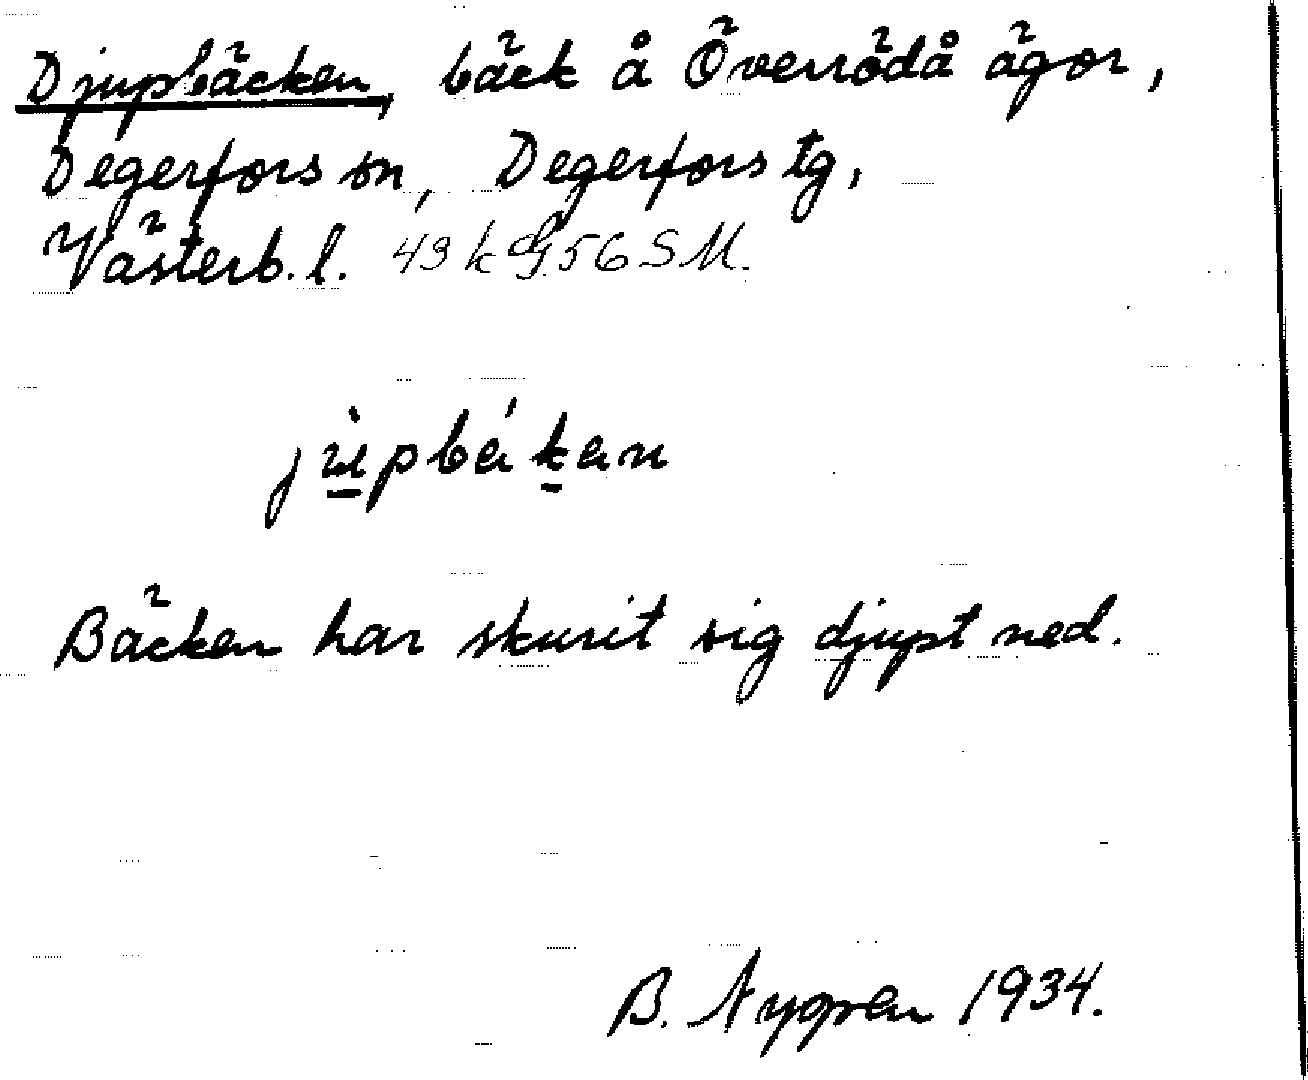 Djupbäcken, bäck å Överrödå ägor,
Degerfors sn, Degerfors tg,
Västerb. l. 49 k G. 56 S M.
Bäcken har skurit sig djupt ned.
B. Nygren 1934.